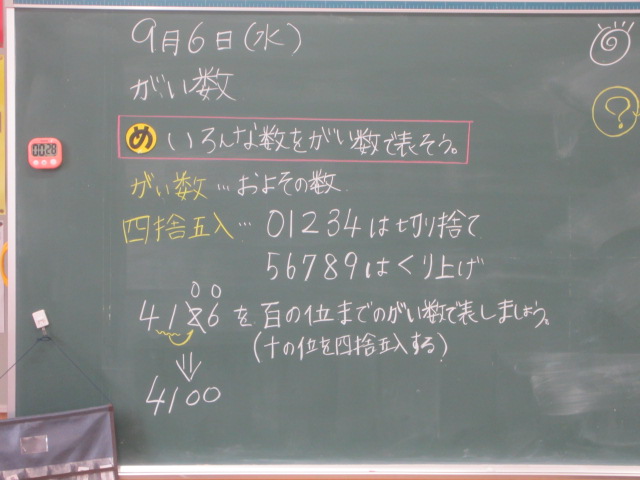 9月6日(水)
がい数
め いろんな数をがい数で表そう。
がい数…およその数
四捨五入…01234は切り捨て
56789はくり上げ
00
4126を百の位までのがい数で表しましょう。
(十の位を四捨五入する)
⇓
4100
?
0028